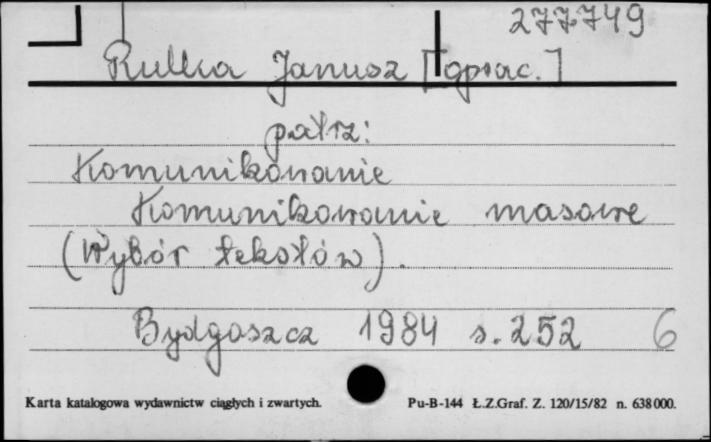 277749
Rulka Janusz [oprac.]
patrz:
Komunikowanie
Komunikowanie masowe
(Wybór tekstów).
Bydgoszcz 1984 s. 252 6
Karta katalogowa wydawnictw ciągłych i zwartych. Pu-B-144 Ł.Z.Graf. Z. 120/15/82 n. 638000.